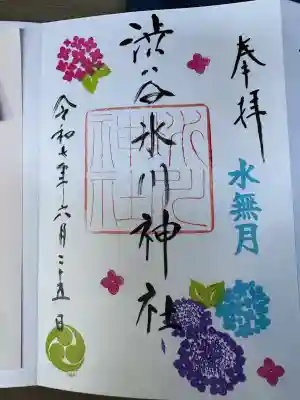 奉拝
水無月
渋谷氷川神社
令和七年六月二十五日